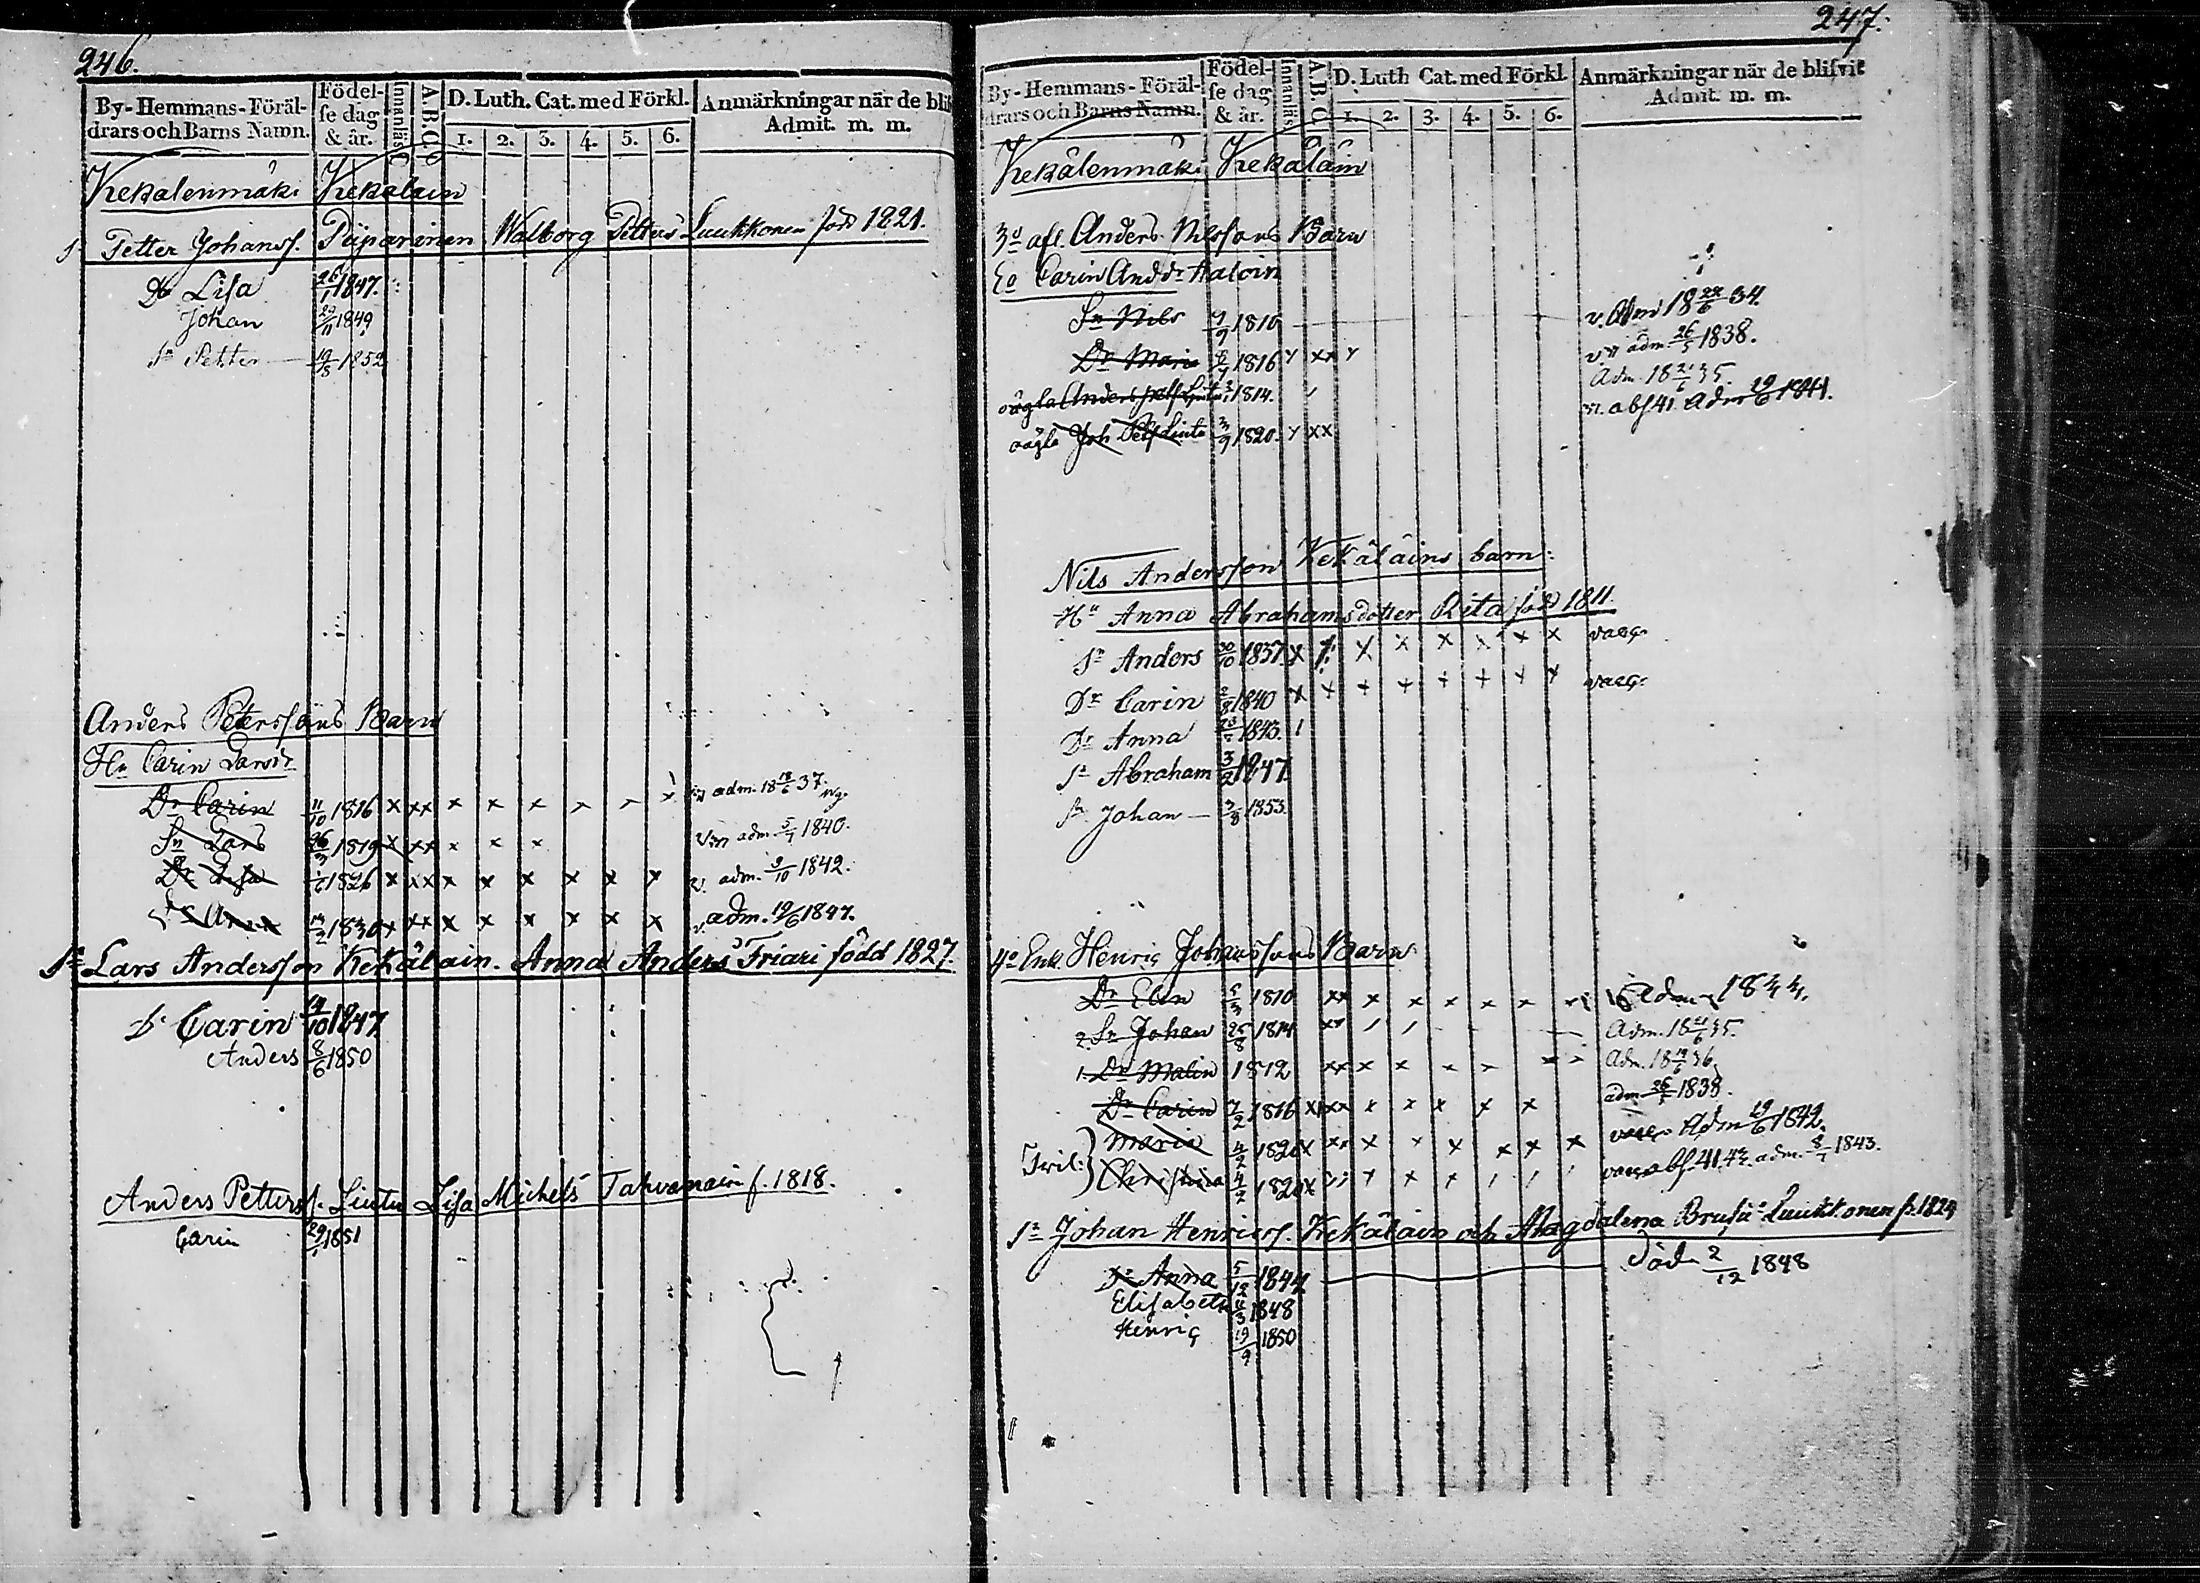 246.
By-Hemmans-Föräl-
drars och Barns Namn.
Födel-
se dag
& år.
Innanläs.
A.B.C.
D. Luth. Cat. med Förkl.
1. 2. 3. 4. 5. 6.
Anmärkningar när de blif
Admit. m. m.
Kekälenmäki Kekäläin
Petter Johanss. Piiparinen Walborg Petters Luukkonen född 1821.
Dr Lisa 26/1 1847.
Johan 29/11 1849
Sn Petter 19/8 1852
Anders Peterssons Barn
Hu Carin Larsdr
Dr Carin 11/10 1816 x xx x x x x x x adm. 18 18/6 37.
Sn Lars 26/3 1819 x xx x x x adm. 5/7 1840.
Dr Lisa 1826 x xx x x x x x x v. adm. 9/10 1842.
Dr Anna 1830 x xx x x x x x x v. adm. 19/6 1847.
Sn Lars Andersson Kekäläin. Anna Anders Friari född 1827.
Dr Carin 14/10 1847
Anders 8/6 1850
Anders Petterss. Liutu Lisa Michels Tahvanain f. 1818.
Carin 29/1 1851
247.
By-Hemmans-Föräl-
drars och Barns Namn.
Födel-
se dag
& år.
Innanläs.
A.B.C.
D. Luth Cat. med Förkl.
1. 2. 3. 4. 5. 6.
Anmärkningar när de blifvit
Admit. m. m.
Kekälenmäki Kekäläin
3o afl. Anders Nilssons Barn
Carin Anddr
Sn Nils 7/9 1810 v. Adm 18 22/6 34.
Dr Maria 1816 x xx adm 26/5 1838.
Anders Liutu 1814. Adm. 18 21/6 35.
Joh Liutu 3/9 1820. x xx abs 41 Adm 19/6 1841.
Nils Andersson Kekäläins barn:
Hu Anna Abrahamsdotter Rita född 1811.
Sn Anders 30/10 1837 x x x x x x x x vacc.
Dr Carin 2/8 1840 x x x x x x x x vacc.
Dr Anna 1843.
Sn Abraham 3/2 1847
Sn Johan 7/8 1853.
4o Enk. Henric Johanssons Barn
Dr Elin 5/3 1810 xx x x x x x Adm 1833.
2. Sn Johan 25/8 1814 xx Adm. 18 21/6 35.
1. Dr Malin 1812 xx x x x x Adm. 18 36
Dr Carin 7/2 1816 x xx x x x x x adm 26/5 1838.
Tvil: Maria 4/2 1820 x xx x x x x x x vacc. Adm 19/6 1842.
Christina 4/2 1820 x vacc abs. 41. 42. adm. 8/7 1843.
Sn Johan Henricss. Kekäläin och Magdalena Luukkonen f. 1824
Dr Anna 5/12 1844 Död 2/12 1848
Elisabeth 4/3 1848
Henric 19/9 1850